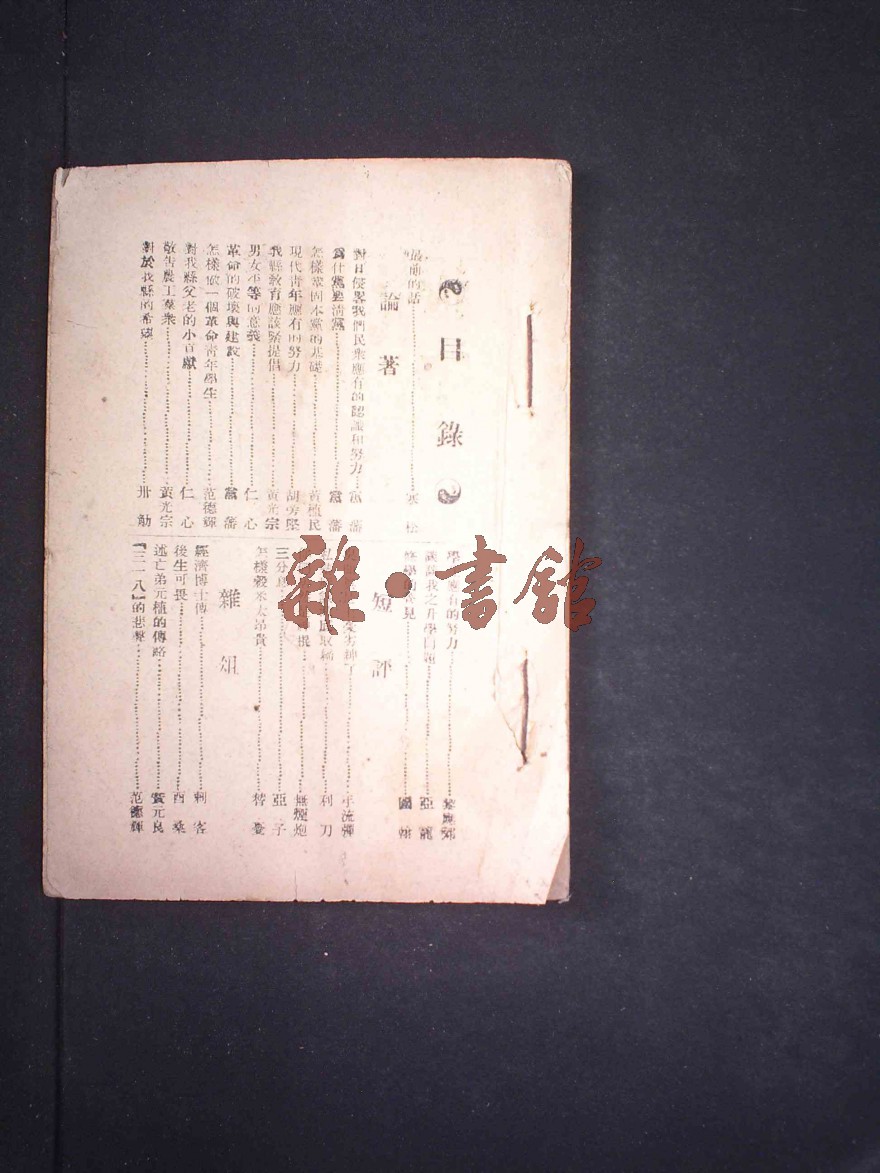 目錄
最前的話
論著
對日侵畧我們民衆應有的認識和努力 黨藩
爲什麼要清黨 黨藩
怎樣鞏固本黨的基礎 黃植民
現代青年應有的努力 胡秀
我縣教育應該緊提倡 黃光宗
男女平等的意義 仁心
革命的破壞與建設 黨藩
怎樣做一個革命青年學生 范德輝
對我縣父老的小貢獻 仁心
敬告農工羣衆 黃光宗
對於我縣的希望 冊勛
應有的努力
談談我之升學問題 亞龍
見 國
短評
流彈
利刀
無煙炮
三分 亞子
怎樣穀米太昂貴 替憂
雜俎
經濟博士傳 刺客
後生可畏 酉桑
述亡弟元植的傳略 黃元良
『三一八』的悲聲 范德輝
雜·書館